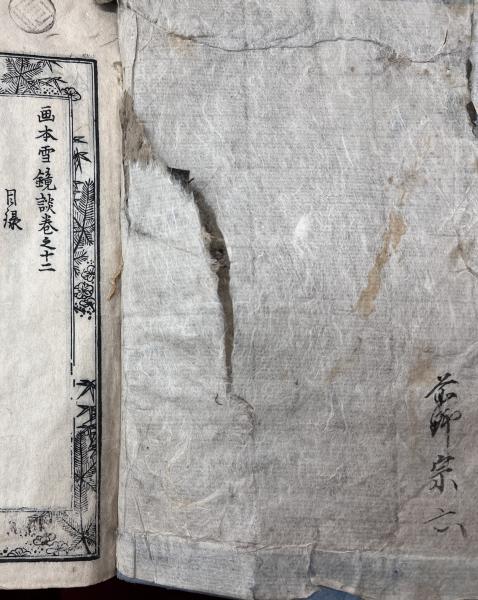 宗六
画本雪鏡談巻之十二
目録